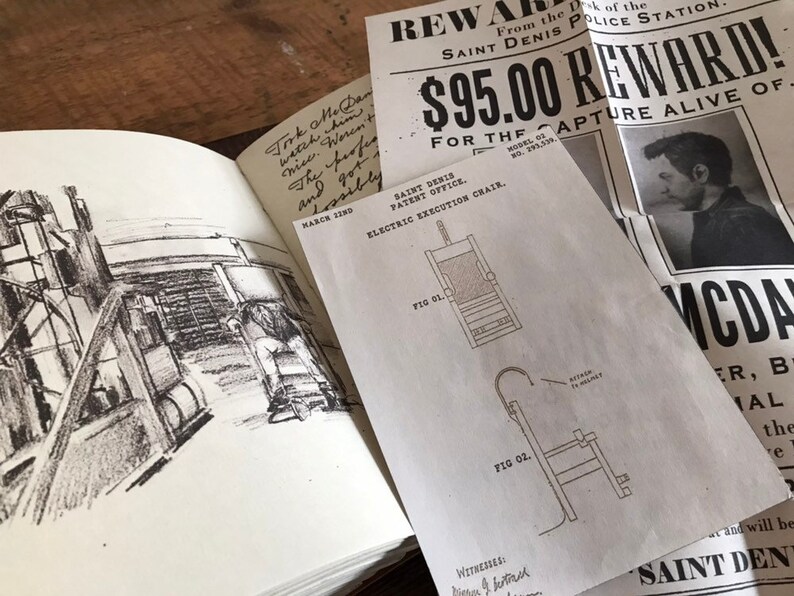 REWARD
From the Desk of the
SAINT DENIS POLICE STATION.
$95.00 REWARD!
FOR THE CAPTURE ALIVE OF
MCDA
ER, B
MAL
the
and will be
SAINT DENI
Took McDan
watch him
nice. Weren't
The profes
and got
possibly
MARCH 22ND
SAINT DENIS
PATENT OFFICE.
MODEL. 02
NO. 293,539.
ELECTRIC EXECUTION CHAIR.
FIG 01.
ATTACH
TO HELMET
FIG 02.
WITNESSES: